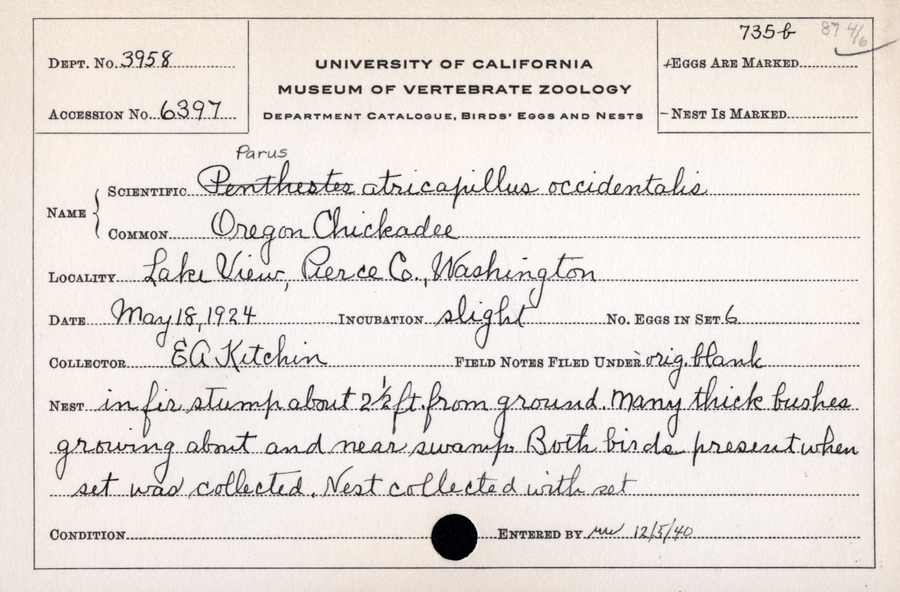 735b 87 4/6
DEPT. No. 3958
UNIVERSITY OF CALIFORNIA
+EGGS ARE MARKED
MUSEUM OF VERTEBRATE ZOOLOGY
ACCESSION No. 6397
DEPARTMENT CATALOGUE, BIRDS' EGGS AND NESTS
- NEST IS MARKED
Parus
NAME { SCIENTIFIC Penthestes atricapillus occidentalis
COMMON Oregon Chickadee
LOCALITY Lake View, Pierce Co., Washington
DATE May 18, 1924 INCUBATION slight No. EGGS IN SET 6
COLLECTOR EA Kitchin FIELD NOTES FILED UNDER orig. blank
NEST in fir stump about 2½ ft. from ground. Many thick bushes
growing about and near swamp. Both birds present when
set was collected. Nest collected with set
CONDITION ENTERED BY 12/5/40